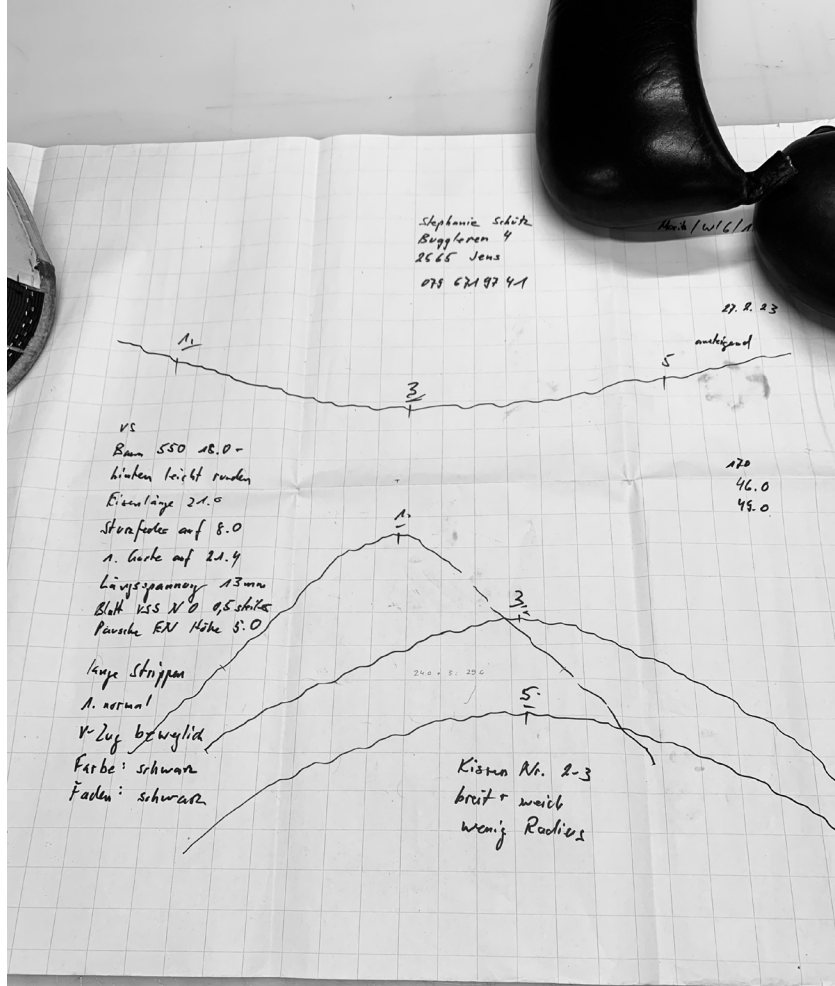 Stephanie Schütz
Buggleren 4
2565 Jens
079 671 97 41
/W/G/1
27.2.23
ansteigend
1.
3
5
VS
Baum 550 18.0-
hinten leicht runden
Eisenlänge 21.0
Sturzfeder auf 8.0
1. Gurte auf 21.4
Längsspannung 13mm
Blatt VSS N 0 0,5 steiler
Pausche EN Höhe 5.0
lange Strippen
1. normal
V-Zug beweglich
Farbe: schwarz
Faden: schwarz
170
46.0
49.0
1.
3
5.
Kissen Nr. 2-3
breit + weich
wenig Radius